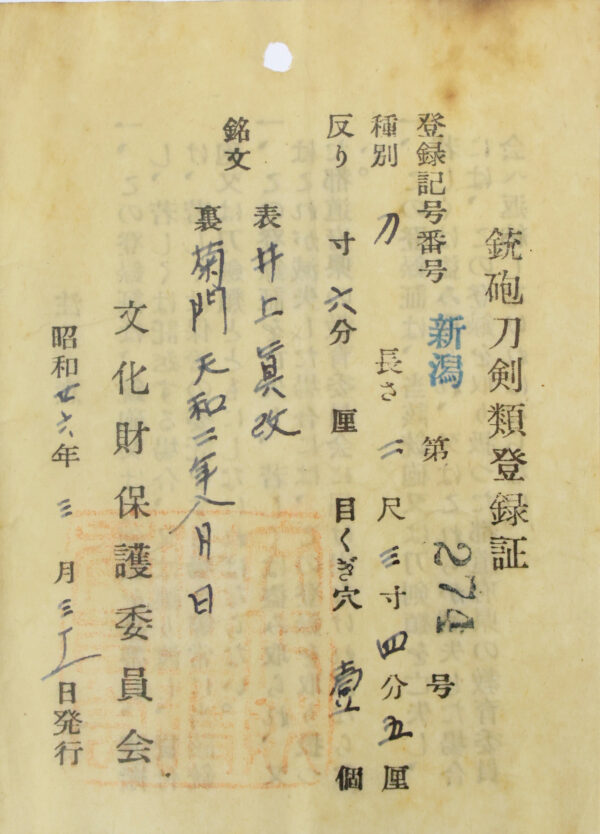 銃砲刀剣類登録証
登録記号番号 新潟 第 274 号
種別 刀 長さ 二尺三寸四分五厘
反り 寸六分 厘 目くぎ穴 壹個
銘文 表 井上眞改
裏 菊門 天和二年八月日
文化財保護委員会
昭和廿六年三月三一日発行